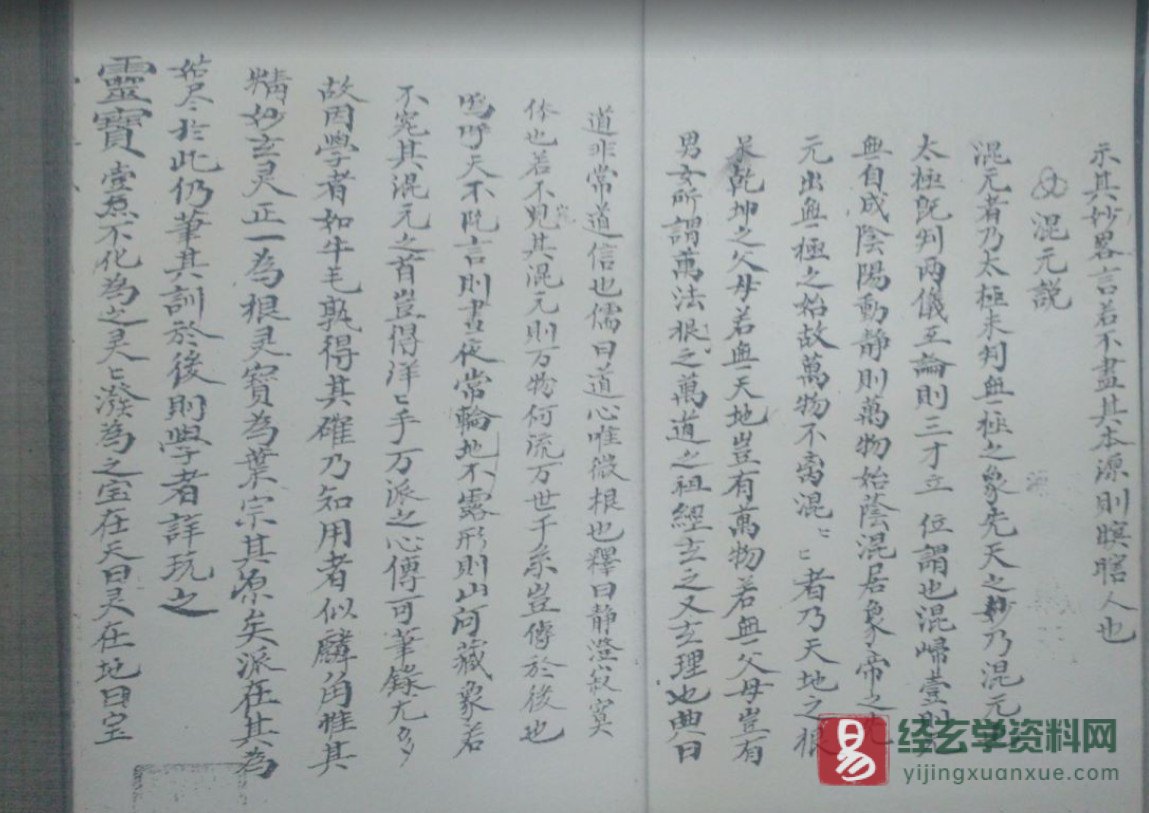 示其妙畧言若不盡其本源則瞑瞎人也
混元説
混元者乃太極未判無極之象先天之妙乃混元
太極既判兩儀至論則三才立位謂也混歸壹則
無自成陰陽動静則萬物始蔭混居象帝之先
元出無極之始故萬物不离混〻者乃天地之根
乾坤之父母若無天地豈有萬物若無父母豈有
男女所謂萬法根之萬道之祖經玄之又玄理也典曰
道非常道信也儒曰道心唯微根也釋曰静澄寂寞
体也若不見其混元則万物何流万世千系豈傳於後也
嗚呼天不既言則晝夜常輪地不露形則山河藏象若
不究其混元之首豈得洋〻乎万派之心傳可筆錄尤多
故因學者如牛毛孰得其確乃知用者似麟角惟其
精妙玄灵正一為根灵寶為葉宗其原矣派在其為
始尽於此仍筆其訓於後則學者詳玩之
靈寶壹炁不化為之灵〻潑為之宝在天曰灵在地曰宝
易
经玄学资料网
yijingxuanxue.com